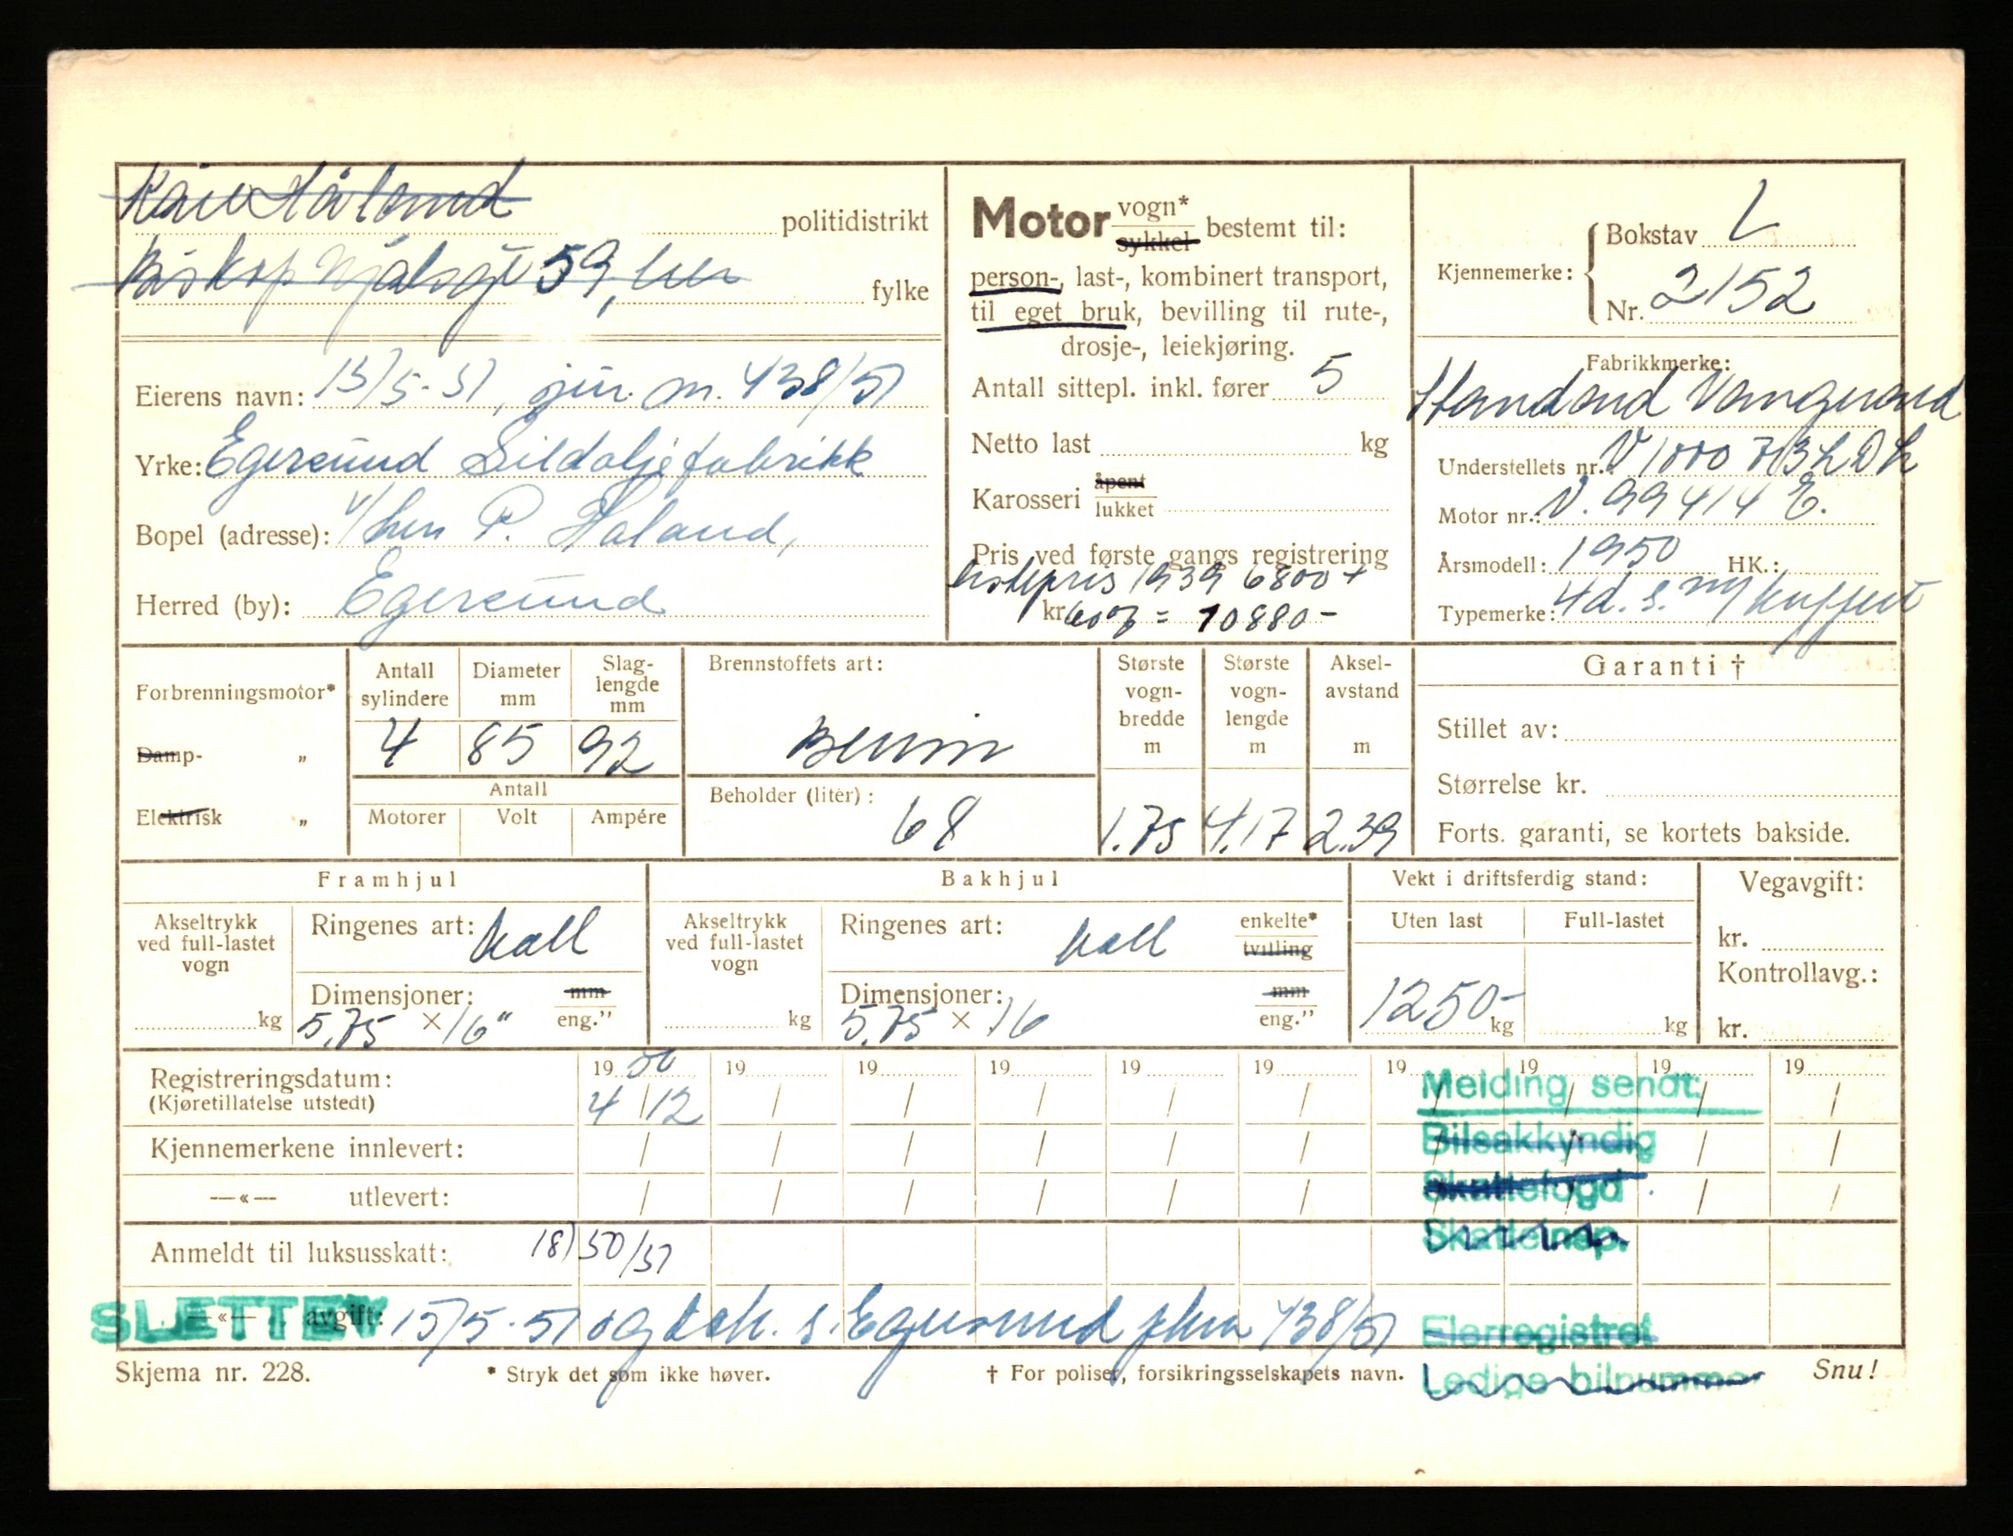 Kåre Håland
politidistrikt
Biskop Njålsgt 59,
fylke
Eierens navn: 15/5-51, jnr. m. 438/51
Yrke: Egersund Sildoljefabrikk
Bopel (adresse): v/ P. Håland,
Herred (by): Egersund
Motor vogn* sykkel bestemt til:
person-, last-, kombinert transport,
til eget bruk, bevilling til rute-,
drosje-, leiekjøring.
Antall sittepl. inkl. fører 5
Netto last kg
Karosseri åpent lukket
Pris ved første gangs registrering
listepris 1939 6800 +
kr. 60% = 10880-
Kjennemerke: Bokstav L
Nr. 2152
Fabrikkmerke:
Standard Vanguard
Understellets nr. V 1000 713 L D L
Motor nr.: V. 99414 E.
Årsmodell: 1950 HK.:
Typemerke: 4 d. s. m/ kuffert
Forbrenningsmotor*
Damp- „
Elektrisk „
Antall sylindere 4
Diameter mm 85
Slag-lengde mm 92
Antall
Motorer Volt Ampére
Brennstoffets art:
Bensin
Beholder (liter):
68
Største vogn-bredde m 1.75
Største vogn-lengde m 4.17
Aksel-avstand m 2.39
Garanti †
Stillet av:
Størrelse kr.
Forts. garanti, se kortets bakside.
Framhjul
Akseltrykk ved full-lastet vogn kg
Ringenes art: hall
Dimensjoner: mm
5.75 × 16" eng."
Bakhjul
Akseltrykk ved full-lastet vogn kg
Ringenes art: hall enkelte* tvilling
Dimensjoner: mm
5.75 × 16 eng."
Vekt i driftsferdig stand:
Uten last Full-lastet
1250- kg kg
Vegavgift:
kr.
Kontrollavg.:
kr.
Registreringsdatum: 19 50 19 19 19 19 19 19 19 19 19
(Kjøretillatelse utstedt) 4/12 / / / / / / / / /
Kjennemerkene innlevert: / / / / / / / / / /
—«— utlevert: / / / / / / / / / /
Anmeldt til luksusskatt: 18) 50/51
—«— avgift: 15/5-51 og s. Egersund 438/51
SLETTET
Melding sendt:
Bilsakkyndig
Skattefogd
Skatteinsp.
Eierregistret
Ledige bilnummer
Skjema nr. 228.
* Stryk det som ikke høver.
† For poliser, forsikringsselskapets navn.
Snu!